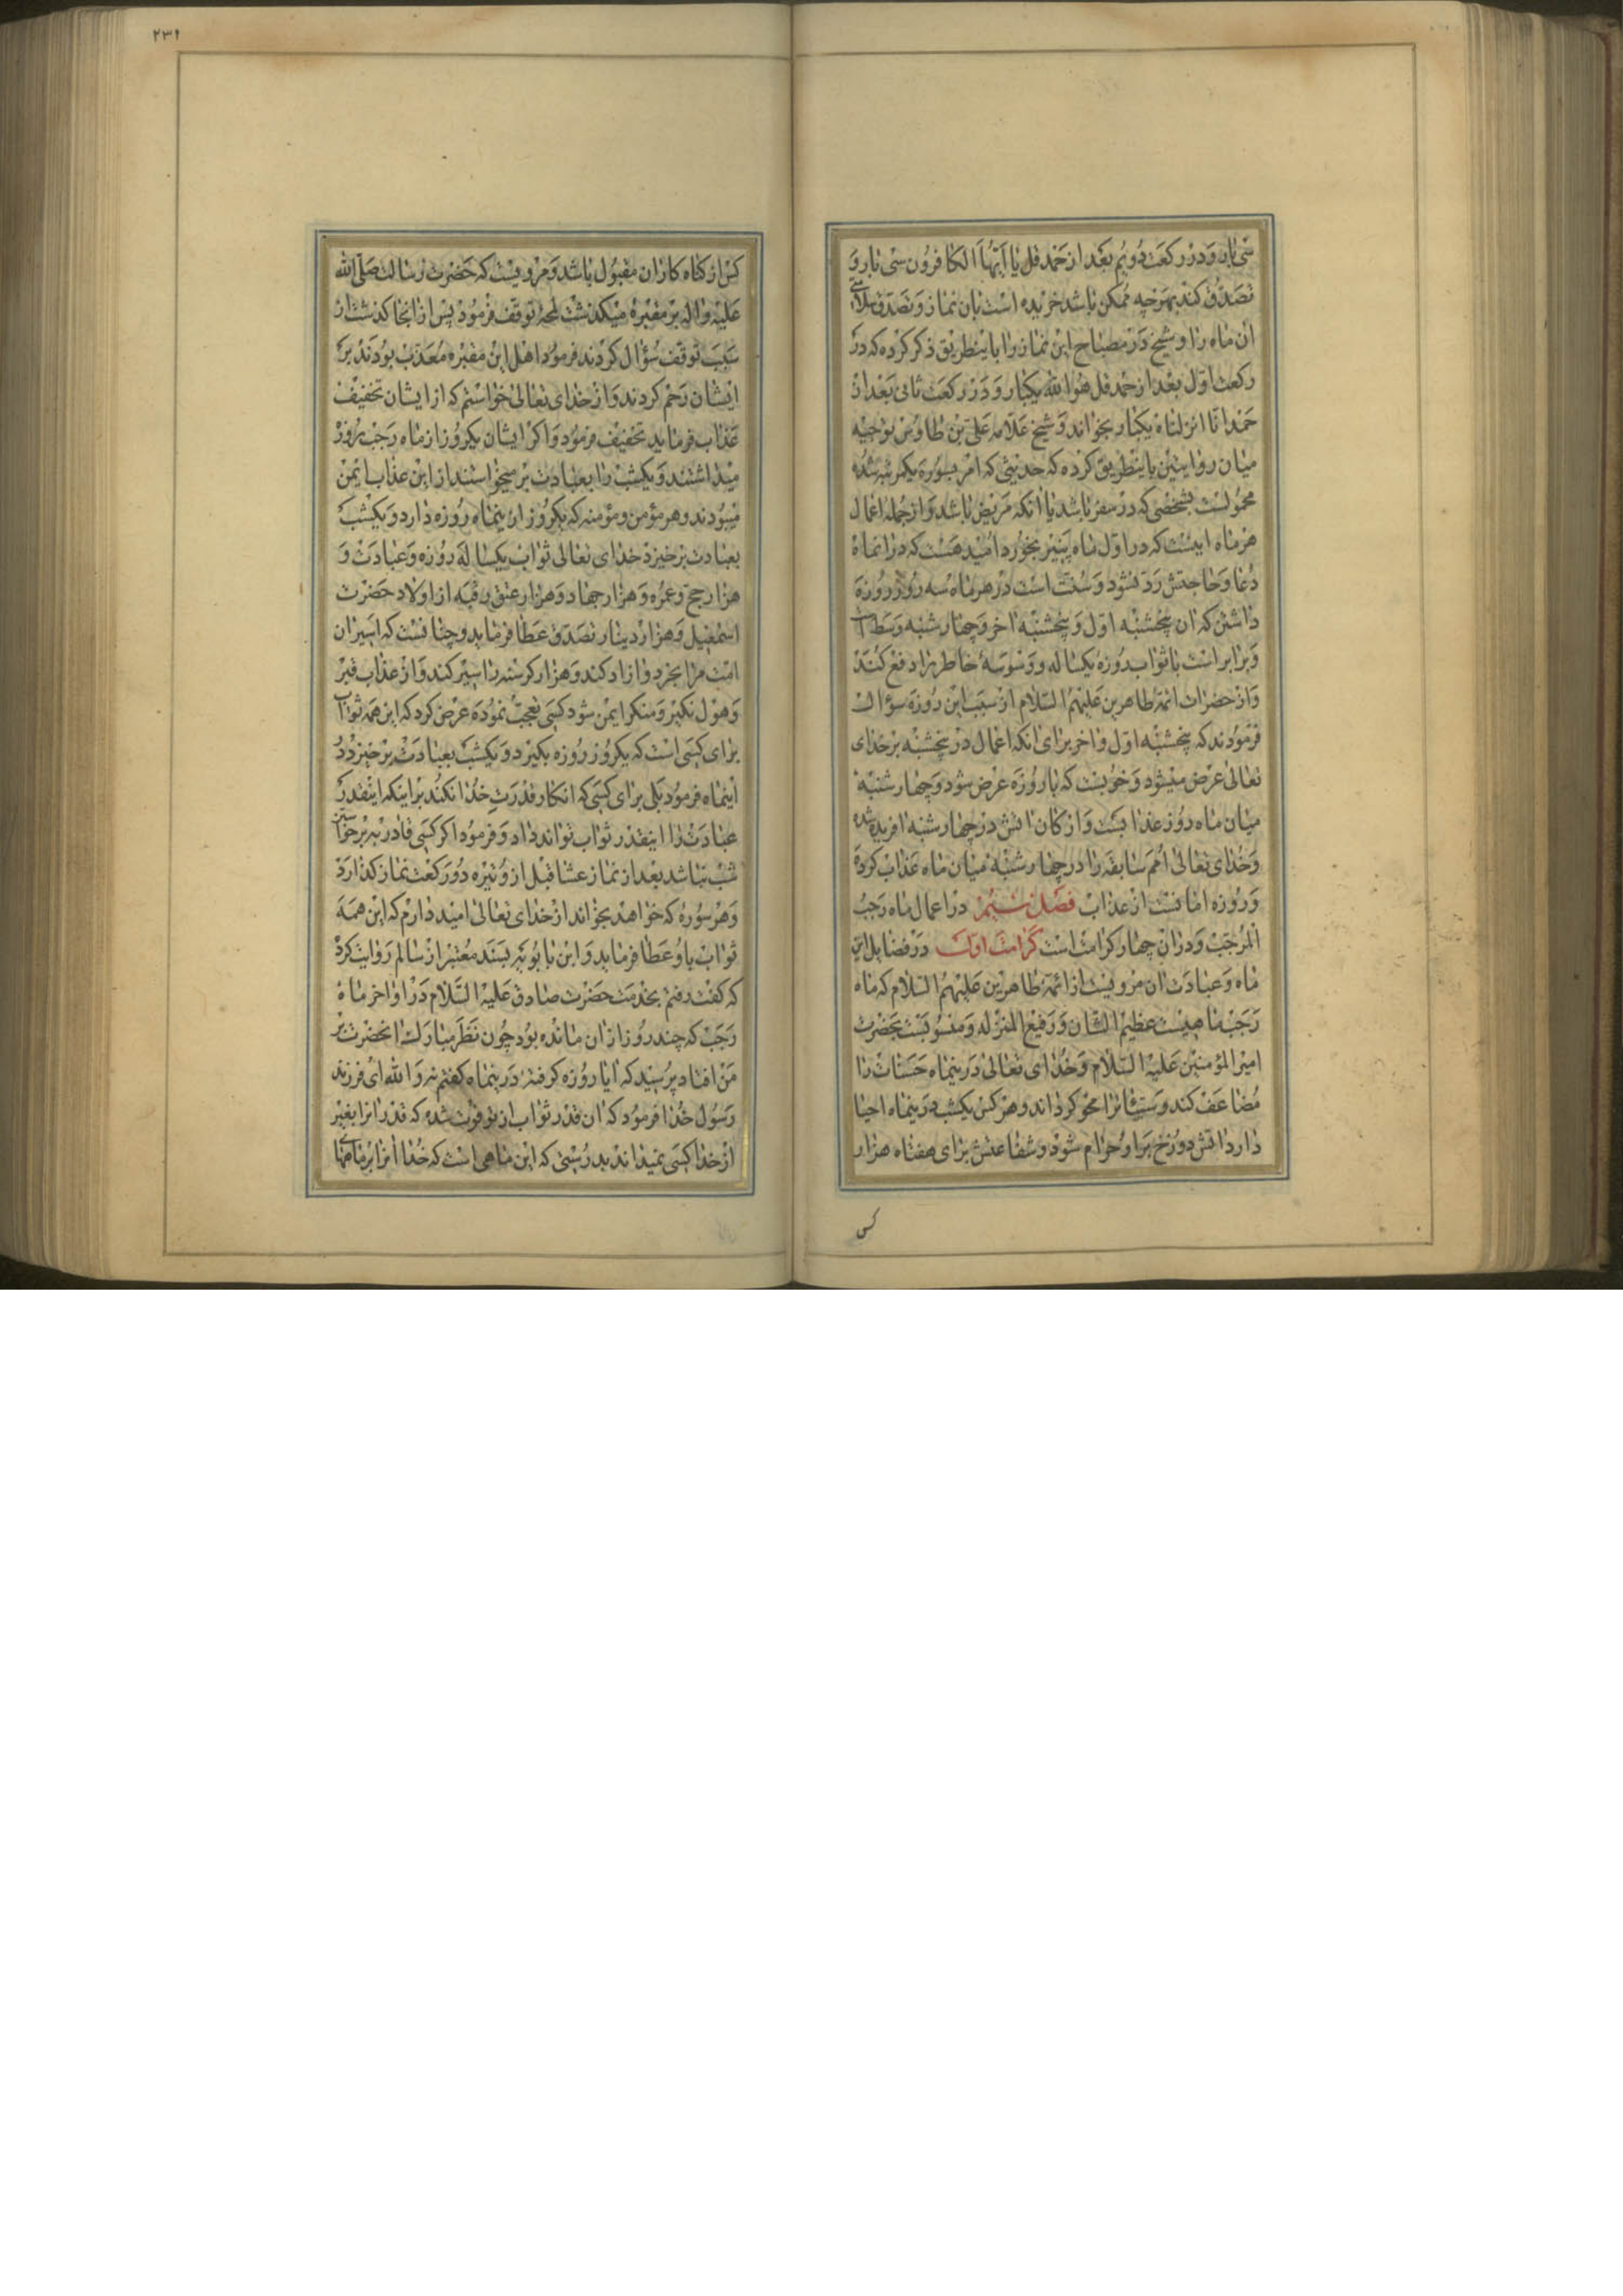 سی بار و در رکعت دویم بعد از حمد قل یا ایها الکافرون سی بار و
تصدق کند بهرچه ممکن باشد خریده است بان نماز و تصدق سلامتی
ان ماه را و شیخ در مصباح این نماز را باینطریق ذکر کرده که در
رکعت اول بعد از حمد قل هو الله یکبار و در رکعت ثانی بعد از
حمد انا انزلناه یکبار بخواند و شیخ علامه علی بن طاوس توجیه
میان روایتین باینطریق کرده که حدیثی که امر بسوره یکمرتبه شده
محمولست بشخصی که در سفر باشد یا انکه مریض باشد و از جمله اعمال
هر ماه اینست که در اول ماه پنیر بخورد امید هست که در انماه
دعا و حاجتش رد نشود و سنت است در هر ماه سه روز روزه
داشتن که ان پنجشنبه اول و پنجشنبه اخر و چهارشنبه وسط
و برابر است با ثواب روزه یکساله و وسوسهٔ خاطر را دفع کند
و از حضرات ائمه طاهرین علیهم السلام از سبب این روزه سؤال
فرمودند که پنجشنبه اول و اخر برای انکه اعمال در پنجشنبه بر خدای
تعالی عرض میشود و خوبست که با روزه عرض شود و چهارشنبه
میان ماه روز عذابست و ارکان اتش در چهارشنبه افریده شده
و خدای تعالی امم سابقه را در چهارشنبه میان ماه عذاب کرده
و روزه امانست از عذاب فصل سیم در اعمال ماه رجب
المرجب و در ان چهار کرامت است کرامت اول در فضایل این
ماه و عبادت ان مرویست از ائمه طاهرین علیهم السلام که ماه
رجب ماهیست عظیم الشان و رفیع المنزله و منسوبست بحضرت
امیر المؤمنین علیه السلام و خدای تعالی در ینماه حسنات را
مضاعف کند و سیئات را محو کرداند و هر کس یکشب در ینماه احیا
دارد اتش دوزخ بر او حرام شود و شفاعتش برای هفتاه هزار
کس
۲۳۱
کس از کناه کاران مقبول باشد و مرویست که حضرت رسالت صلی الله
علیه و اله بر مقبرهٔ میکذشت لمحه توقف فرمود پس از انجا کذشت از
سبب توقف سؤال کردند فرمود اهل این مقبره معذب بودند بر
ایشان رحم کردند و از خدای تعالی خواستم که از ایشان تخفیف
عذاب فرماید تخفیف فرمود و اکر ایشان یکروز از ماه رجب روزه
میداشتند و یکشب را بعبادت بر میخواستند از این عذاب ایمن
میبودند و هر مؤمن و مؤمنه که یکروز از ینماه روزه دارد و یکشب
بعبادت برخیزد خدای تعالی ثواب یکساله روزه و عبادت و
هزار حج و عمره و هزار جهاد و هزار عتق رقبه از اولاد حضرت
اسمعیل و هزار دینار تصدق عطا فرماید و چنانست که اسیران
امت مرا بخرد و ازاد کند و هزار کرسنه را سیر کند و از عذاب قبر
و هول نکیر و منکر ایمن شود کسی تعجب نموده عرض کرد که این همه ثواب
برای کسی است که یکروز روزه بکیرد و یکشب بعبادت برخیزد در
اینماه فرمود بلی برای کسی که انکار قدرت خدا نکند بر اینکه اینقدر
عبادت را اینقدر ثواب تواند داد و فرمود اکر کسی قادر به برخواستن
شب نباشد بعد از نماز عشا قبل از وتیره دو رکعت نماز کذارد
و هر سوره که خواهد بخواند از خدای تعالی امید دارم که این همه
ثواب باو عطا فرماید و ابن بابویه بسند معتبر از سالم روایت کرده
که کفت رفتم بخدمت حضرت صادق علیه السلام در اواخر ماه
رجب که چند روز از ان مانده بود چون نظر مبارک انحضرت بر
من افتاد پرسید که ایا روزه کرفته در ینماه کفتم نه و الله ای فرزند
رسول خدا فرمود که ان قدر ثواب از تو فوت شده که قدر انرا بغیر
از خدا کسی نمیداند بدرستی که این ماهی است که خدا انرا بر ماهها